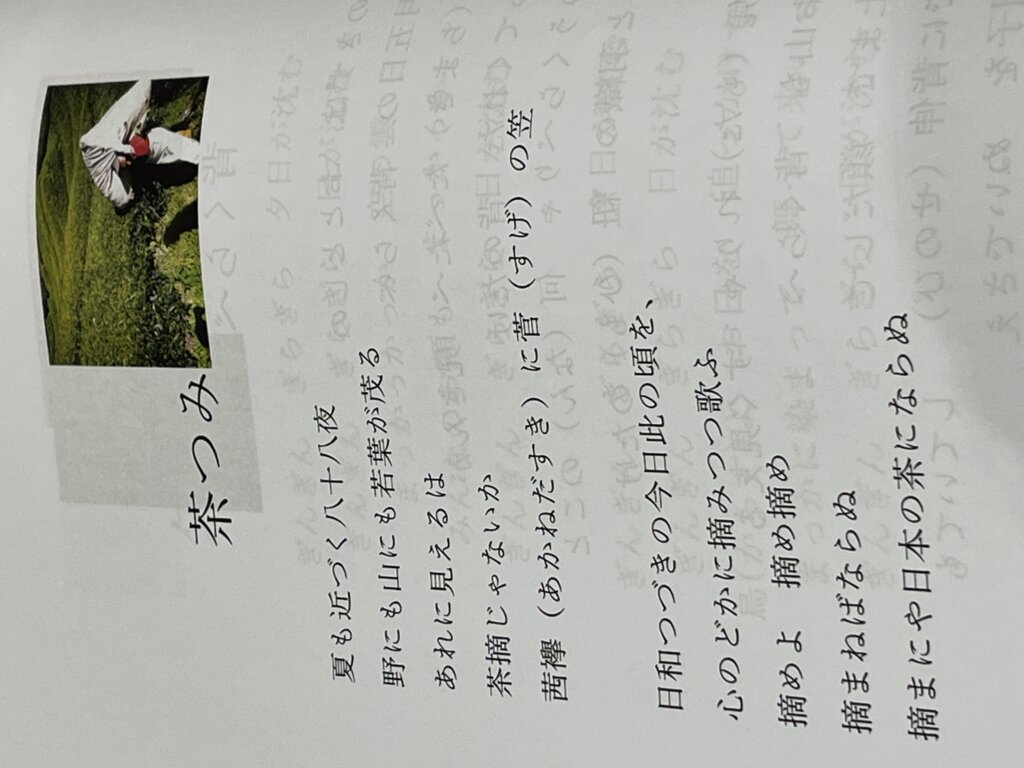 茶つみ
夏も近づく八十八夜
野にも山にも若葉が茂る
あれに見えるは
茶摘じゃないか
茜襷（あかねだすき）に菅（すげ）の笠
日和つづきの今日此の頃を、
心のどかに摘みつつ歌ふ
摘めよ　摘め摘め
摘まねばならぬ
摘まにや日本の茶にならぬ